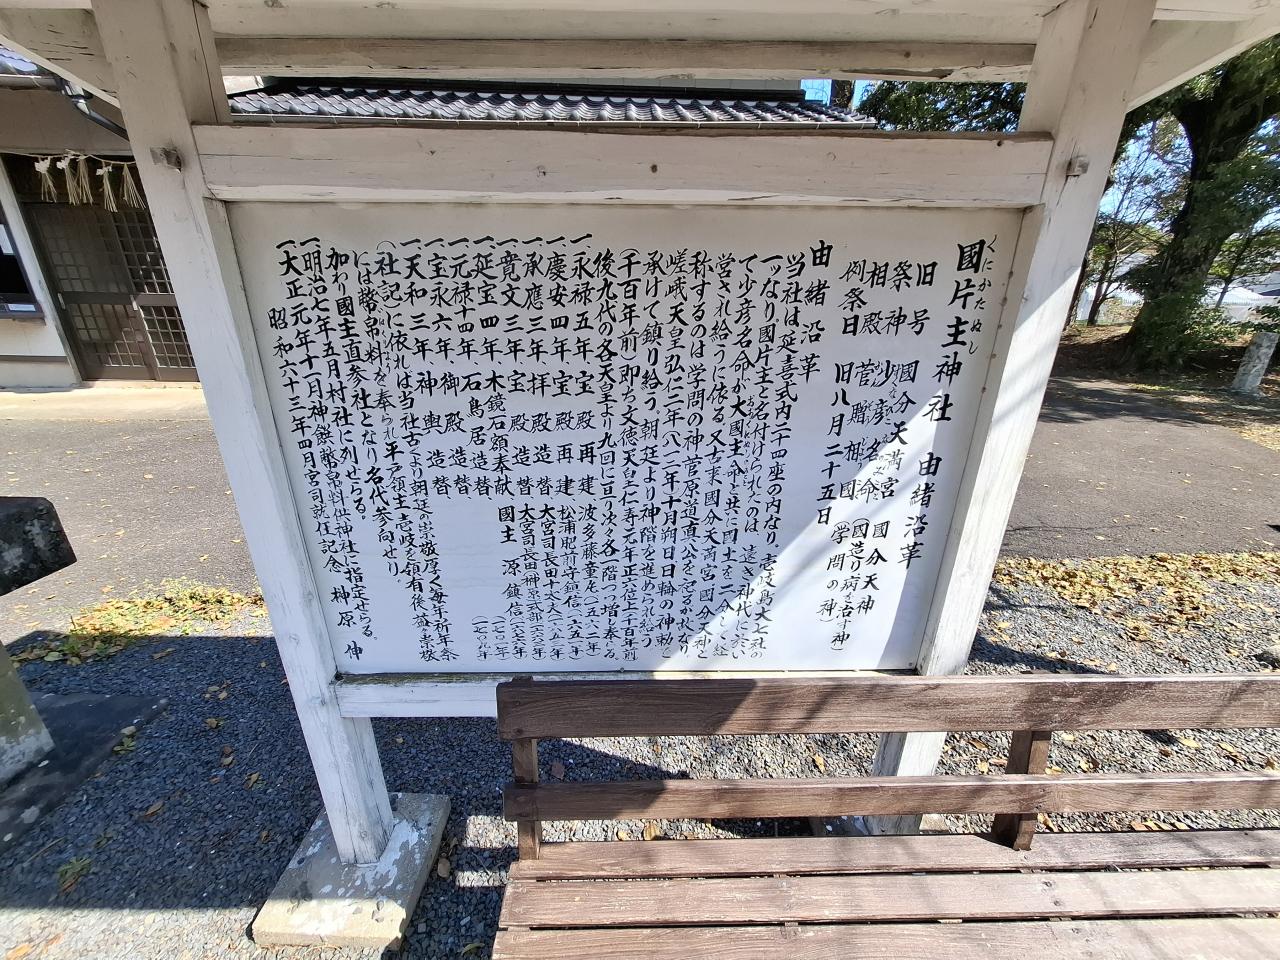 國片主神社 由緒沿革
くにかたぬし
旧号 國分天満宮 國分天神
祭神 少彦名命 (國造り病を治す神)
相殿 菅贈相國 (学問の神)
例祭日 旧八月二十五日
由緒沿革
当社は延喜式内二十四座の内なり、壱岐島大七社の
一つなり國片主と名付けられたのは、遠き神代におい
て少彦名命が大國主命と共に國土を二分して経
営され給うに依る。又古来國分天満宮國分天神と
称するのは学問の神菅原道真公を
嵯峨天皇弘仁二年(八一二年十月朔日日輪の神勅を
承けて鎮り給う、朝廷より神階を進められ給う
(千百年前)即ち文徳天皇仁寿元年正六位上千百年前
後九代の各天皇より九回に亘り次々各一階づつ増し奉る。
一、永禄五年 宝殿再建 波多藤童丸(一五六二年)
一、慶安四年 宝殿再建 松浦肥前守鎮信(一六五一年)
一、承應三年 拝殿造替 大宮司長田
一、寛文三年 宝殿造替 大宮司長田榊原式部
一、延宝四年 木鏡石額奉献 國主 源鎮信
一、元禄十四年 石鳥居造替
一、宝永六年 御殿造替
一、天和三年 神輿造替
(社記)に依れば当社古くより朝廷の崇敬厚く毎年祈年祭
には幣帛料を奉られ平戸領主壱岐を領有後、崇敬
加わり國主直参社となり名代参向せり。
一、明治七年五月村社に列せらる。
一、大正元年十月神饌幣帛料供進神社に指定せらる。
昭和六十三年四月宮司就任記念 榊原 伸